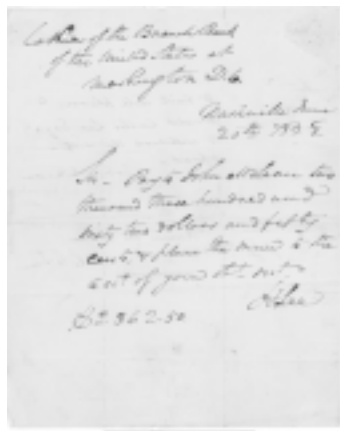 Cashier of the Branch Bank
of the United States at
Washington D.C.
Nashville June
20th 183
Sir— Pay to John McLean two
thousand three hundred and
sixty two dollars and fifty
cents & place the same to the
acct of your obt. svt.
$2.362.50